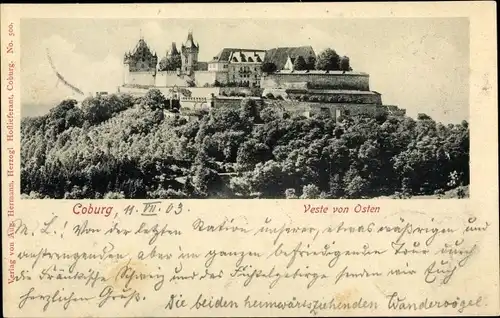 Verlag von Aug. Hermann, Herzogl Hoflieferant, Coburg. No. 500.
Coburg, 11. VII. 03.
Veste von Osten
M. L.! Von der letzten Station unserer, etwas währigen und
anstrengenden aber im ganzen befriedigenden Tour durch
die Fränkische Schweiz und das Fichtelgebirge senden wir Euch
herzlichen Gruß. Die beiden heimwärtsziehenden Wandervögel.